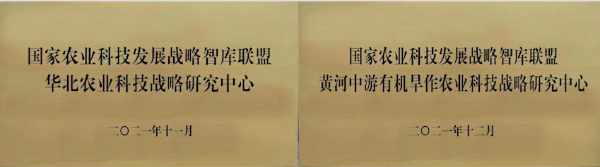 国家农业科技发展战略智库联盟
华北农业科技战略研究中心
二〇二一年十一月
国家农业科技发展战略智库联盟
黄河中游有机旱作农业科技战略研究中心
二〇二一年十二月